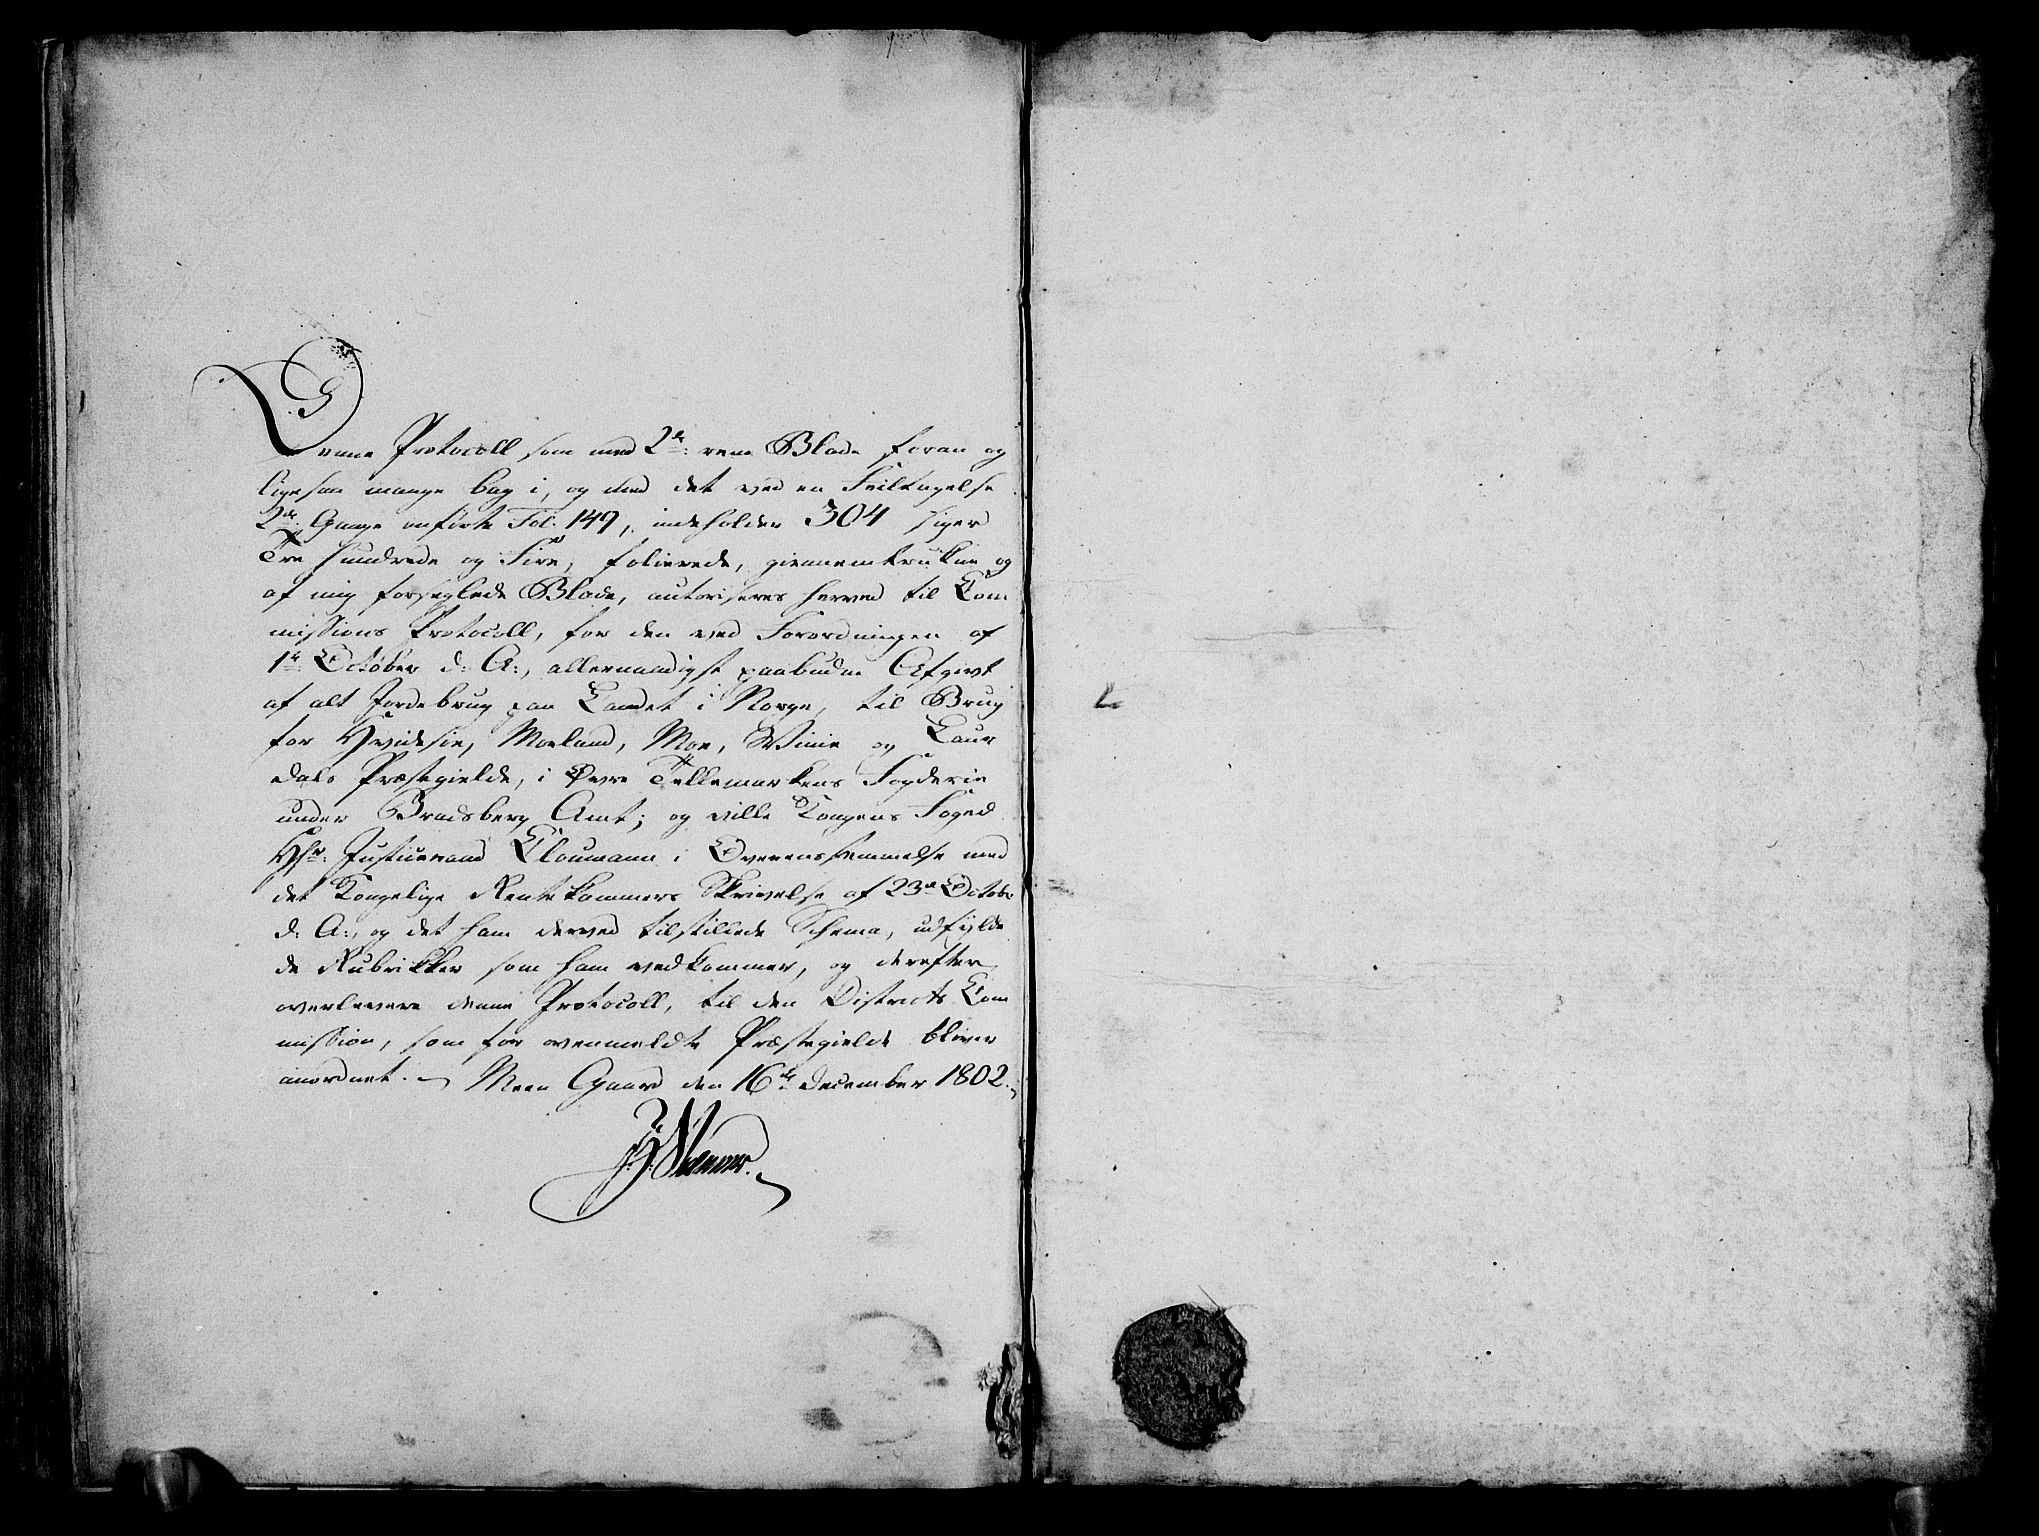 Denne Protocoll, som med 2de rene Blade foran og
ligesaa mange bag i, og med det ved en Feiltagelse
2de Gange anførte Fol. 149, indeholder 304 siger
Tre hundrede og Fire, folierede, giennemtrukne og
af mig forseglede Blade, autoriseres herved til Com
missions Protocoll, for den ved Forordningen af
1te October d: A:, allernaadigst paabudne Afgivt
af alt Jordebrug paa Landet i Norge, til Brug
for Hvidesøe, Moeland, Moe, Winie og Laur
dals Præstegielde, i Øvre Tellemarkens Fogderie
under Bradsberg Amt; og ville Kongens Foged
Hr: Justiceraad Cloumann i Overensstemmelse med
det Kongelige Rentekammers Skrivelse af 23de Octobr
d: A:, og det ham derved tilstillede Schema, udfylde
de Rubrikker som ham vedkommer, og derefter
overlevere denne Protocoll, til den Districts Com
mission, som for ovenmeldte Præstegielde bliver
anordnet. Meen Gaard den 16de December 1802.